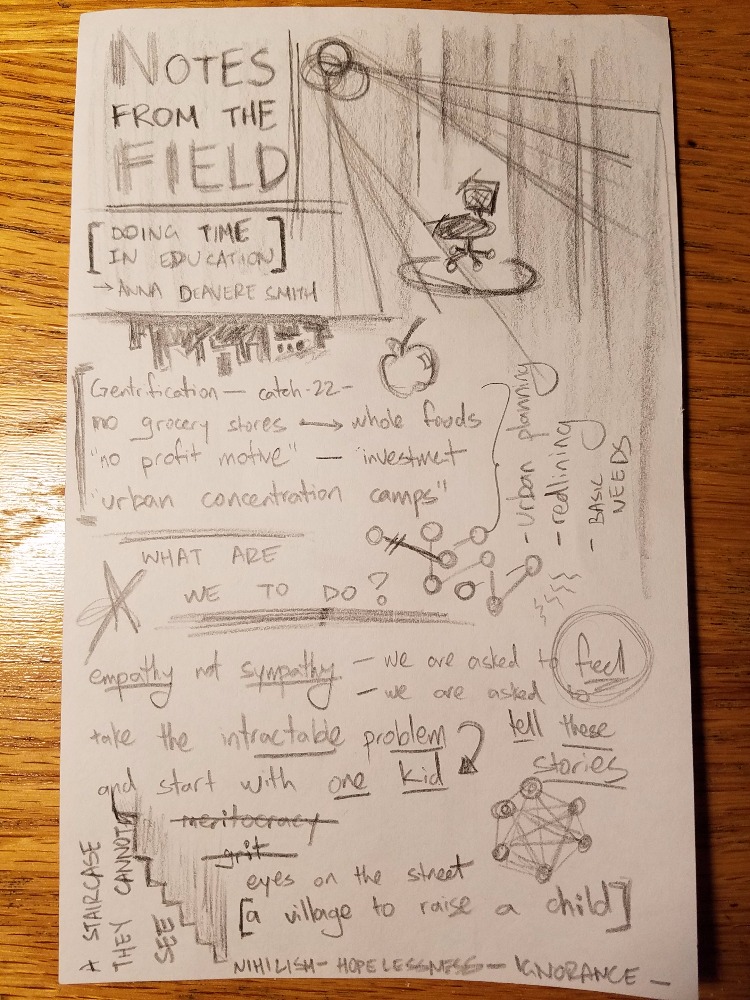 NOTES
FROM THE
FIELD
[DOING TIME
IN EDUCATION]
→ ANNA DEAVERE SMITH
Gentrification — catch-22 -
no grocery stores → whole foods
"no profit motive" — investment
"urban concentration camps"
- urban planning
- redlining
- BASIC
NEEDS
WHAT ARE
WE TO DO?
empathy not sympathy - we are asked to feel
- we are asked to
tell these
stories
take the intractable problem
and start with one kid
meritocracy
grit
eyes on the street
[a village to raise a child]
A STAIRCASE
THEY CANNOT
SEE
NIHILISM - HOPELESSNESS - IGNORANCE -